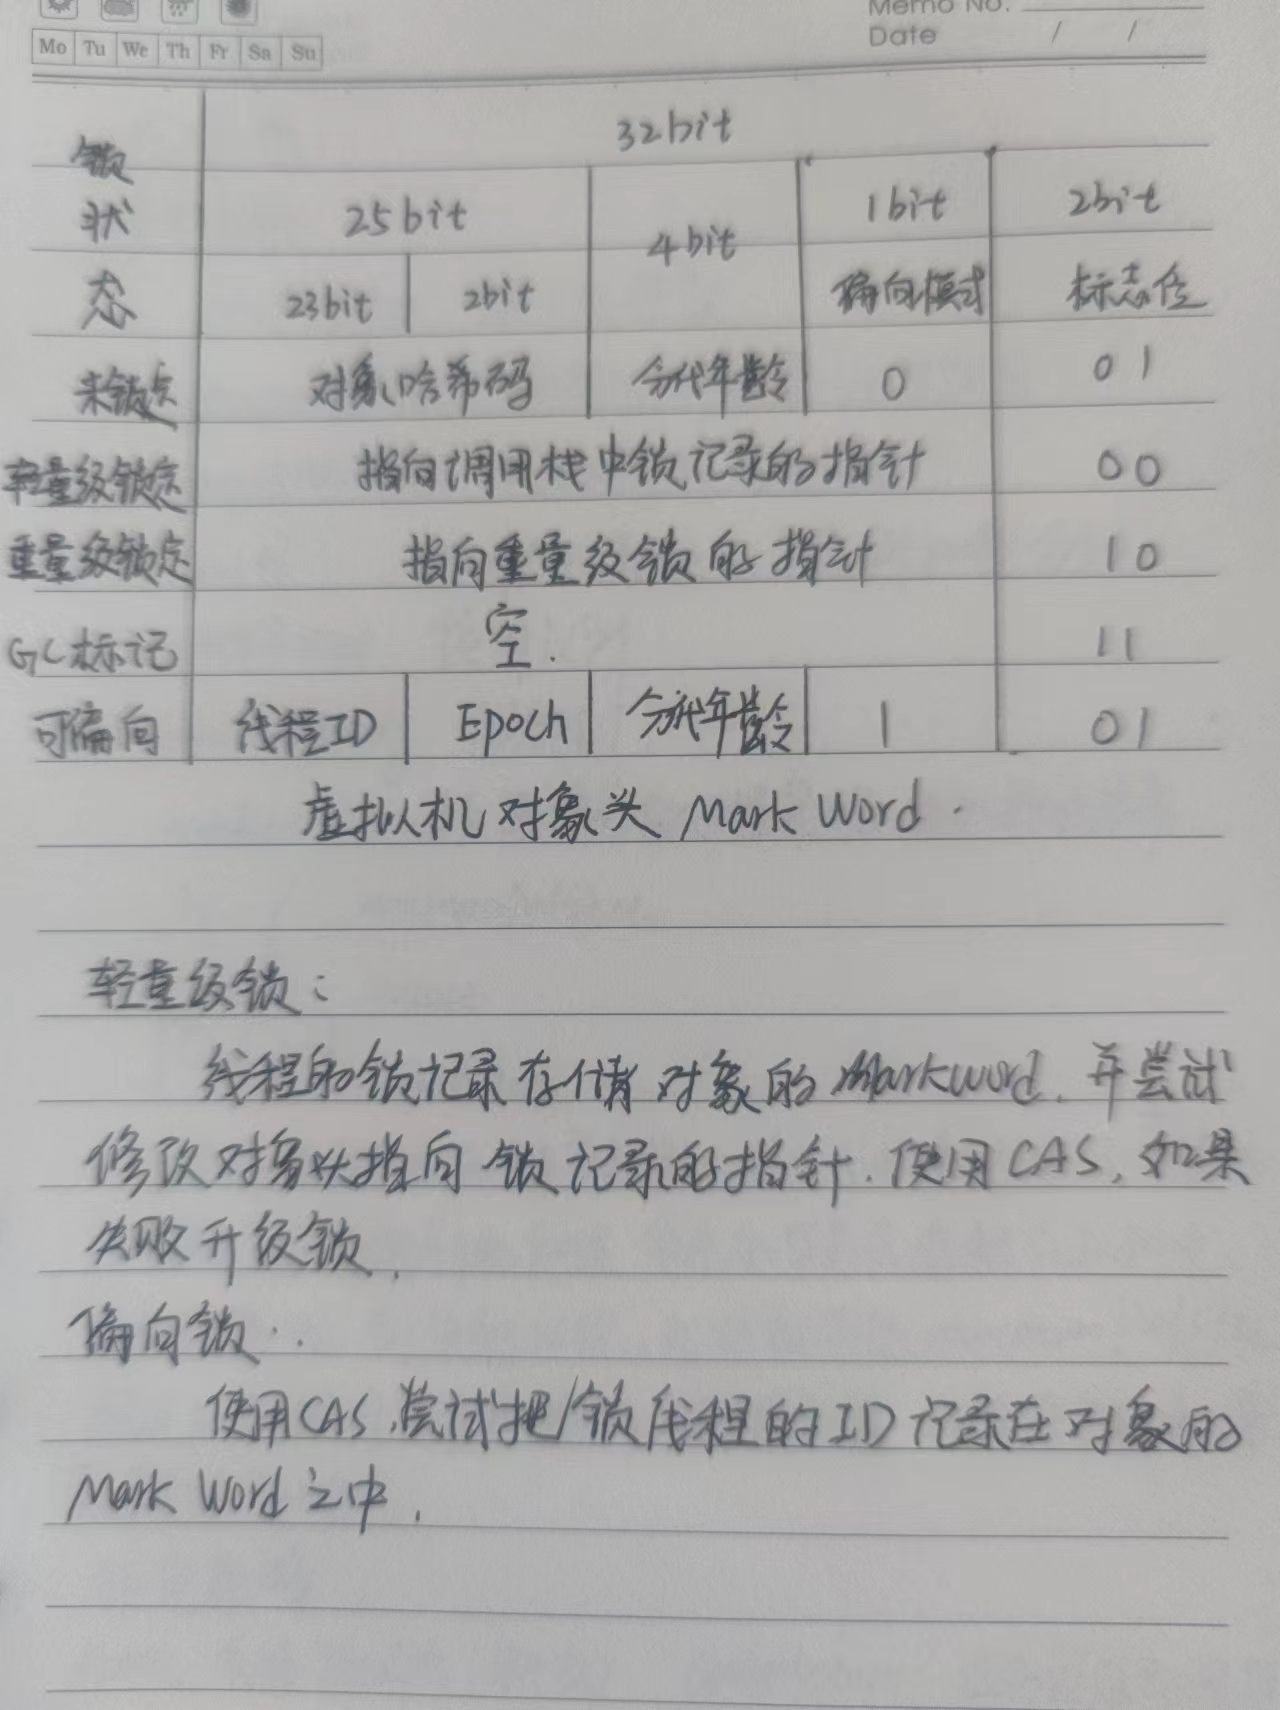 Memo No.
Mo Tu We Th Fr Sa Su
Date / /
锁 32bit
状 25bit 4bit 1bit 2bit
态 23bit 2bit 偏向模式 标志位
未锁定 对象哈希码 分代年龄 0 01
轻量级锁定 指向调用栈中锁记录的指针 00
重量级锁定 指向重量级锁的指针 10
GC标记 空. 11
可偏向 线程ID Epoch 分代年龄 1 01
虚拟机对象头 Mark Word.
轻量级锁:
线程的锁记录存储对象的Markword. 并尝试
修改对象头指向锁记录的指针. 使用CAS, 如果
失败升级锁.
偏向锁:.
使用CAS,尝试把/锁线程的ID记录在对象的
Mark Word之中.